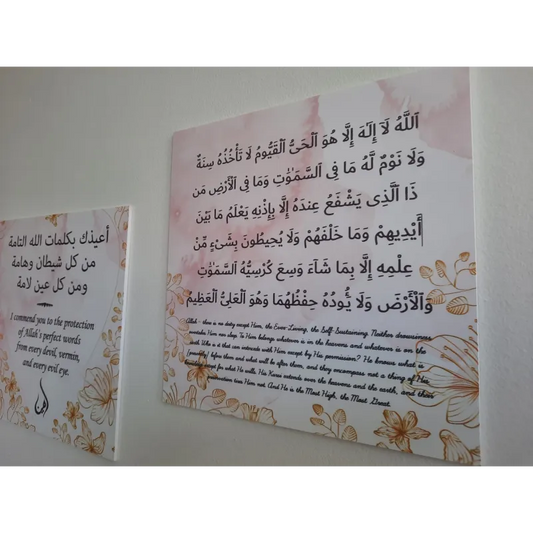 أعيذك بكلمات الله التامة
من كل شيطان وهامة
ومن كل عين لامة
I commend you to the protection
of Allah's perfect words
from every devil, vermin,
and every evil eye.
ٱللَّهُ لَآ إِلَٰهَ إِلَّا هُوَ ٱلْحَىُّ ٱلْقَيُّومُ لَا تَأْخُذُهُ سِنَةٌ
وَلَا نَوْمٌ لَّهُ مَا فِى ٱلسَّمَٰوَٰتِ وَمَا فِى ٱلْأَرْضِ مَن
ذَا ٱلَّذِى يَشْفَعُ عِندَهُ إِلَّا بِإِذْنِهِ يَعْلَمُ مَا بَيْنَ
أَيْدِيهِمْ وَمَا خَلْفَهُمْ وَلَا يُحِيطُونَ بِشَىْءٍ مِّنْ
عِلْمِهِ إِلَّا بِمَا شَآءَ وَسِعَ كُرْسِيُّهُ ٱلسَّمَٰوَٰتِ
وَٱلْأَرْضَ وَلَا يَـُٔودُهُ حِفْظُهُمَا وَهُوَ ٱلْعَلِىُّ ٱلْعَظِيمُ
Allah - there is no deity except Him, the Ever-Living, the Self-Sustaining. Neither drowsiness
overtakes Him nor sleep. To Him belongs whatever is in the heavens and whatever is on the
earth. Who is it that can intercede with Him except by His permission? He knows what is
[presently] before them and what will be after them, and they encompass not a thing of His
except for what He wills. His Kursi extends over the heavens and the earth, and their
preservation tires Him not. And He is the Most High, the Most Great.